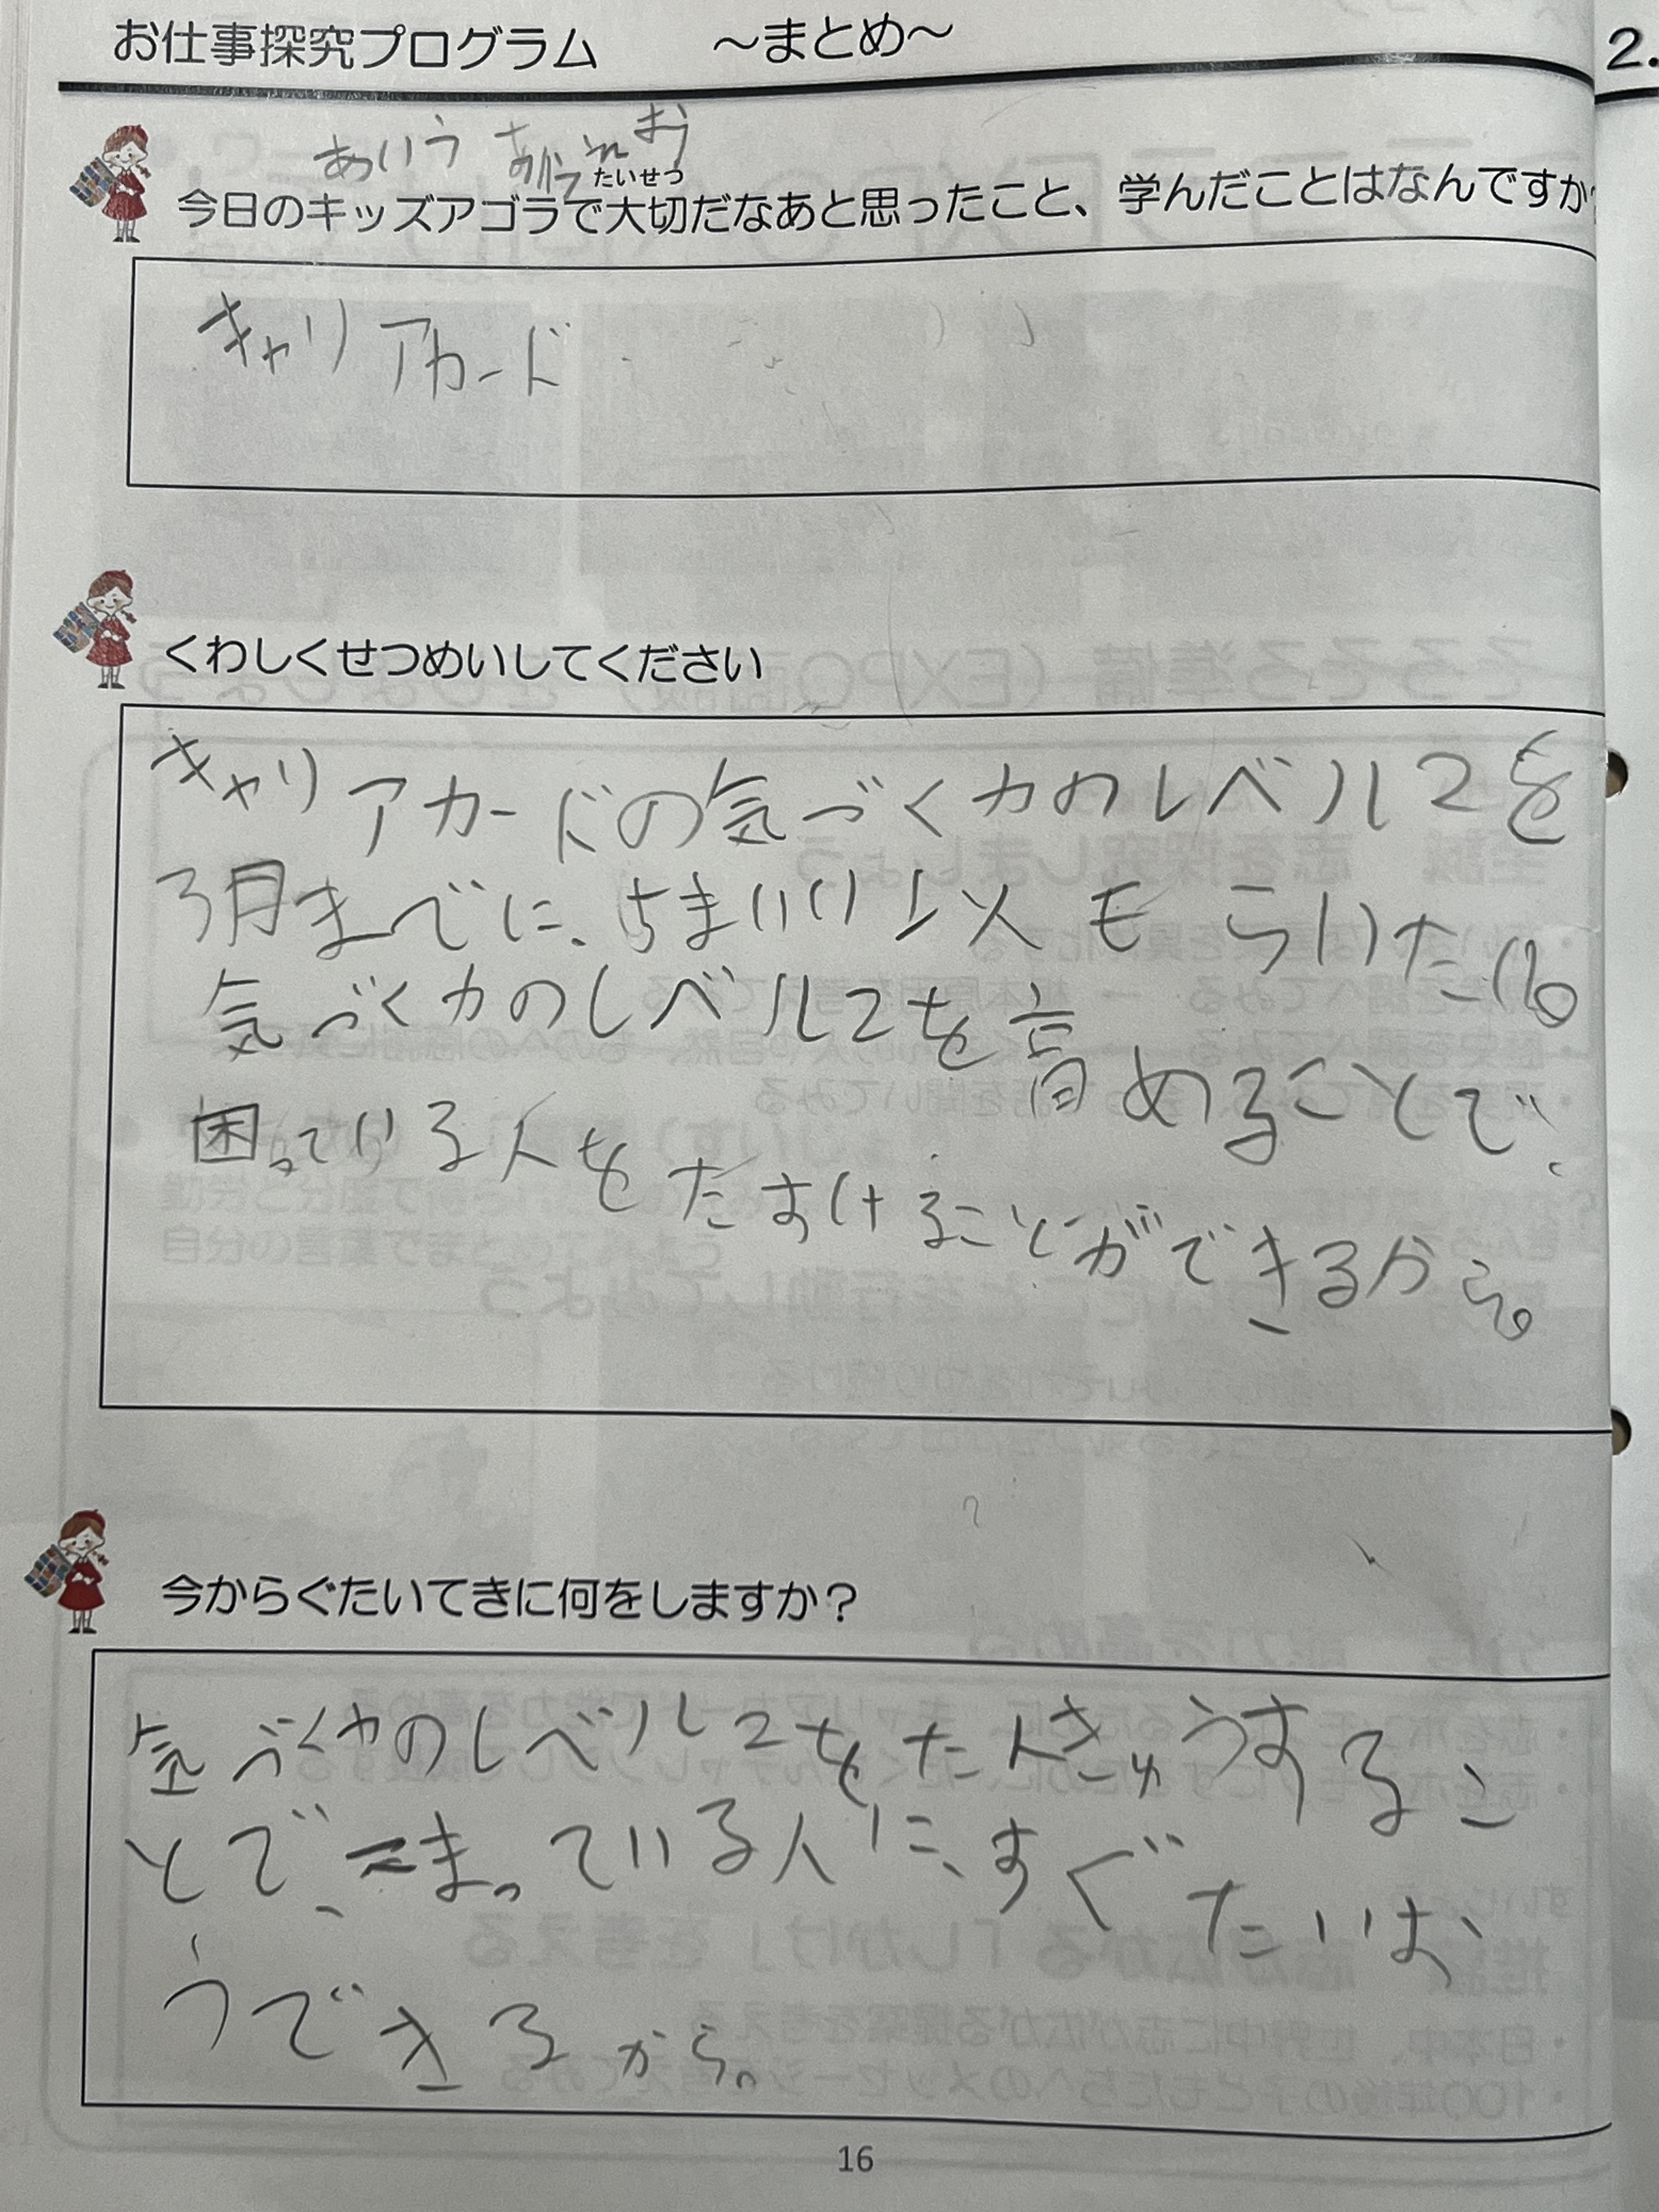 お仕事探究プログラム ～まとめ～
2.
あいう
お
たいせつ
今日のキッズアゴラで大切だなあと思ったこと、学んだことはなんですか
キャリアカード
くわしくせつめいしてください
キャリアカードの気づく力のレベル2を
3月までに、5まい以 もらいたい。
気づく力のレベル2を高めることで、
困っている人をたすけることができるから。
今からぐたいてきに何をしますか？
気づく力のレベル2をたんきゅうするこ
とで、こまっている人に、すぐたいお
うできるから。
16